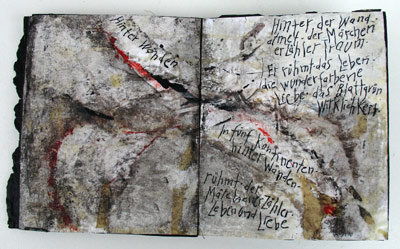 Hinter Wänden
Hinter der Wand.
atmet. der Märchen.
erzähler Traum.
Er rühmt. das Leben.
die wunderfarbene
Liebe. das Blattgrün
Wirklichkeit
In fünf Kontinenten.
hinter Wänden.
rühmt. der
Zähler.
Leben und Liebe